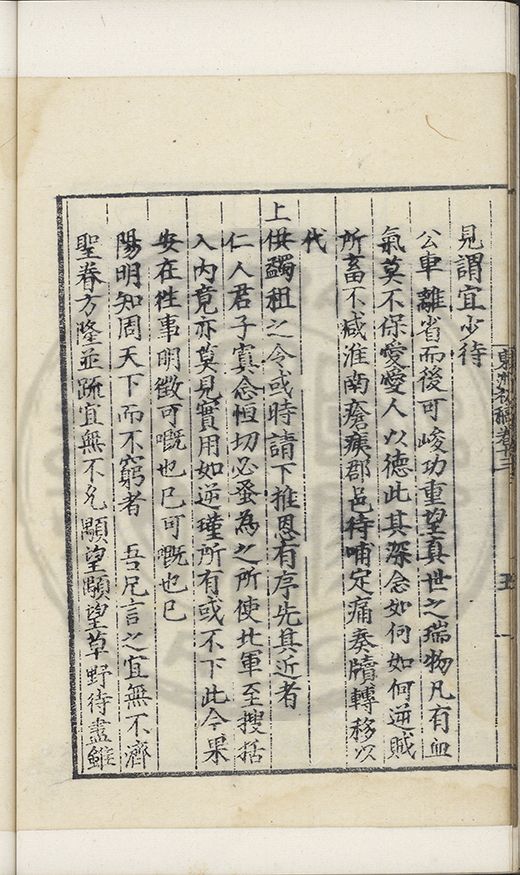 見謂宜少待
公車離省而後可峻功重望真世之瑞物凡有血
氣莫不保愛愛人以德此其深念如何如何逆賊
所畜不減淮南瘡痍郡邑待哺定痛奏牘轉移以
代
上供蠲租之令或時請下推恩有序先其近者
仁人君子寘念恒切必蚤為之所使北軍至搜括
入內竟亦莫見實用如逆瑾所有或不下此今果
安在徃事明徵可嘅也已可嘅也已
陽明知周天下而不窮者 吾兄言之宜無不濟
聖眷方隆並疏宜無不允顒望顒望草野待盡雖
東洲初稿卷十三
五